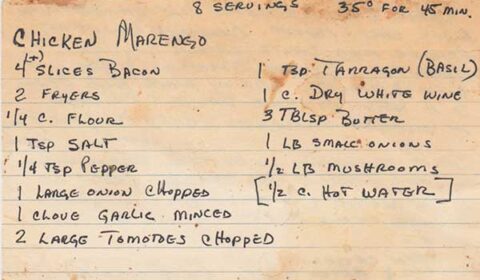 8 SERVINGS 35° FOR 45 MIN.
CHICKEN MARENGO
4(+) SLICES BACON
2 FRYERS
1/4 C. FLOUR
1 TSP SALT
1/4 TSP PEPPER
1 LARGE ONION CHOPPED
1 CLOVE GARLIC MINCED
2 LARGE TOMOTOES CHOPPED
1 TSP TARRAGON (BASIL)
1 C. DRY WHITE WINE
3 TBLSP BUTTER
1 LB SMALL ONIONS
1/2 LB MUSHROOMS
[1/2 C. HOT WATER]